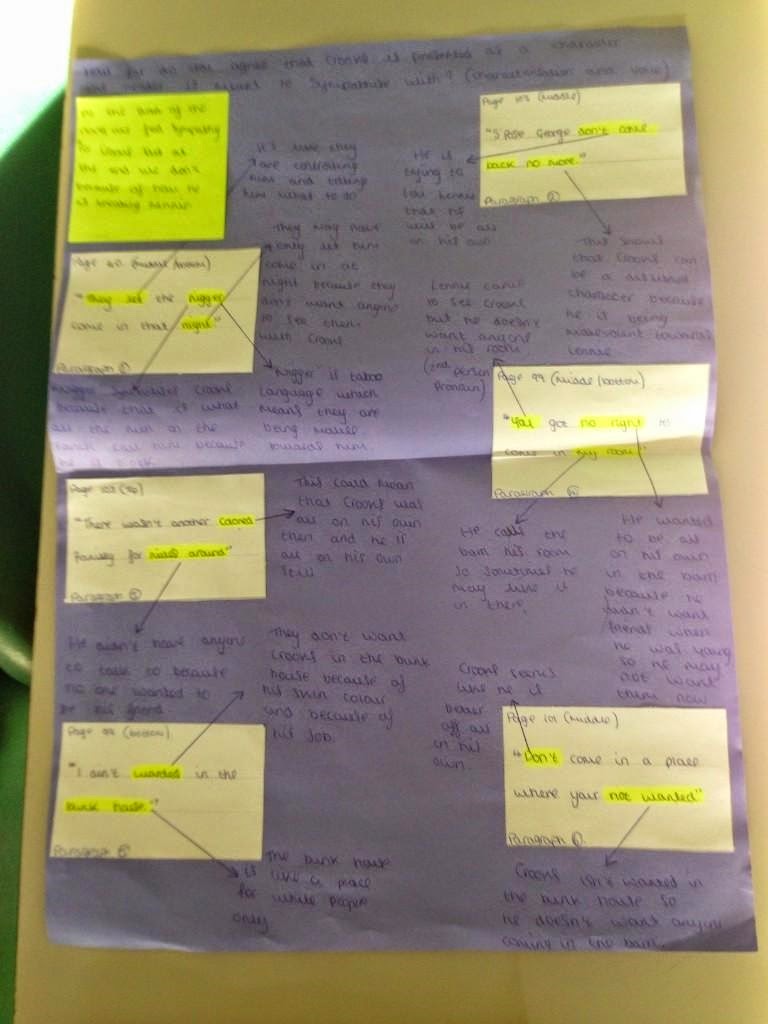 How far do you agree that Crooks is presented as a character
the reader is meant to sympathise with? (Characterisation and voice)
At the start of the
novel we feel sympathy
to Crooks but at
the end we don't
because of how he
is treating Lennie.
It's like they
are controlling
him and telling
him what to do
Page 40 (middle/bottom)
"They let the nigger
come in that night"
Paragraph ①
They may have
only let him
come in at
night because they
don't want anyone
to see them
with Crooks
Nigger is taboo
language which
means they are
being
towards him.
Nigger Crooks
because that is what
all the men on the
ranch call him because
he is black.
Page 103 (middle)
"S'pose George don't come
back no more."
Paragraph
He is
trying to
tell Lennie
that he
will be all
on his own
This shows
that Crooks can
be a disliked
character because
he is being
malevolent towards
Lennie.
Lennie came
to see Crooks
but he doesn't
want anyone
in his room
(2nd person
pronoun)
Page 99 (middle/bottom)
"You got no right to
come in my room."
Paragraph
He calls the
barn his room
so sometimes he
may like it
in there.
He wanted
to be all
on his own
in the barn
because he
didn't want
friends when
he was young
so he may
not want
them now
Page 102 (top)
"There wasn't another colored
family for miles around"
Paragraph
This could mean
that Crooks was
all on his own
then and he is
all on his own
still
He didn't have anyone
to talk to because
no one wanted to
be his friend
They don't want
Crooks in the bunk
house because of
his skin colour
and because of
his job.
Page 99 (bottom)
"I ain't wanted in the
bunk house."
Paragraph
The bunk house
is like a place
for white people
only
Crooks seems
like he is
better
off all
on his
own.
Page 101 (middle)
"Don't come in a place
where your not wanted"
Paragraph
Crooks isn't wanted in
the bunk house so
he doesn't want anyone
coming in the barn.